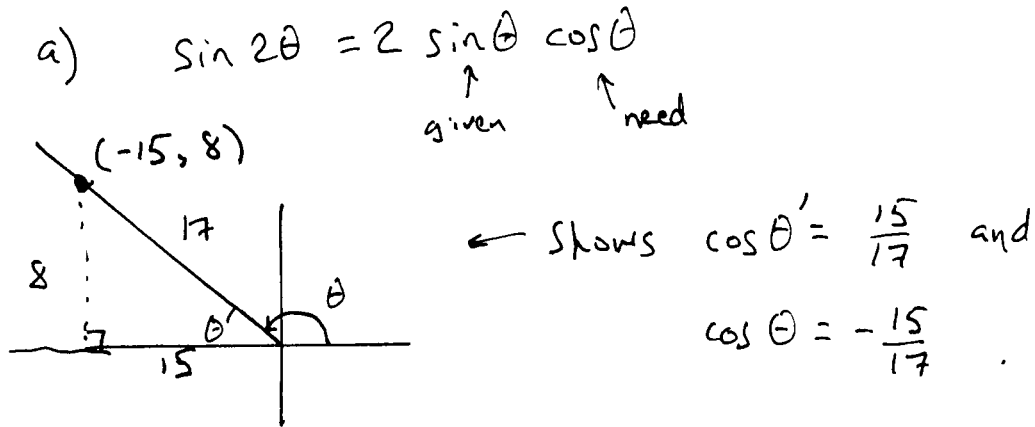 a) sin 2θ = 2 sin θ cos θ
↑ ↑
given need
(-15, 8)
17
← Shows cos θ' = 15/17 and
8
θ' θ
15
cos θ = - 15/17 .